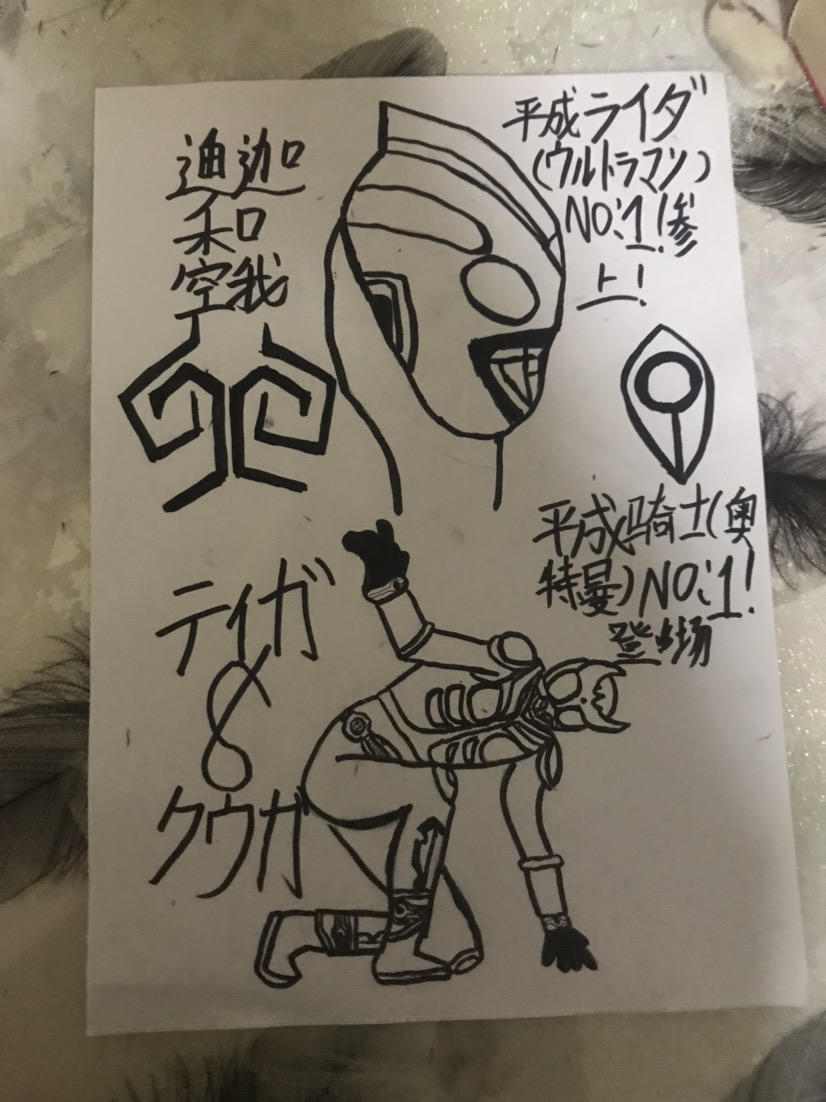 迪迦
和
空我
平成ライダ
(ウルトラマン)
NO:1!参
上!
平成骑士(奥
特曼)NO:1!
登场
ティガ
&
クウガ